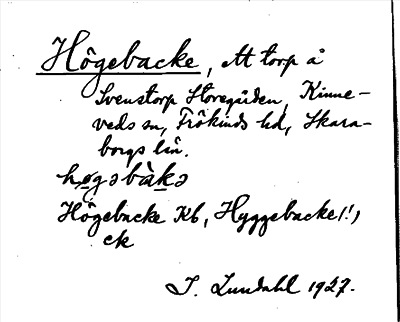 Högebacke, ett torp å
Svenstorp Storegården, Kinne-
veds sn, Frökinds hd, Skara-
borgs län.
høgəbàkə
Högebacke Kb, Hyggebacke(!),
ck
I. Lundahl 1927.